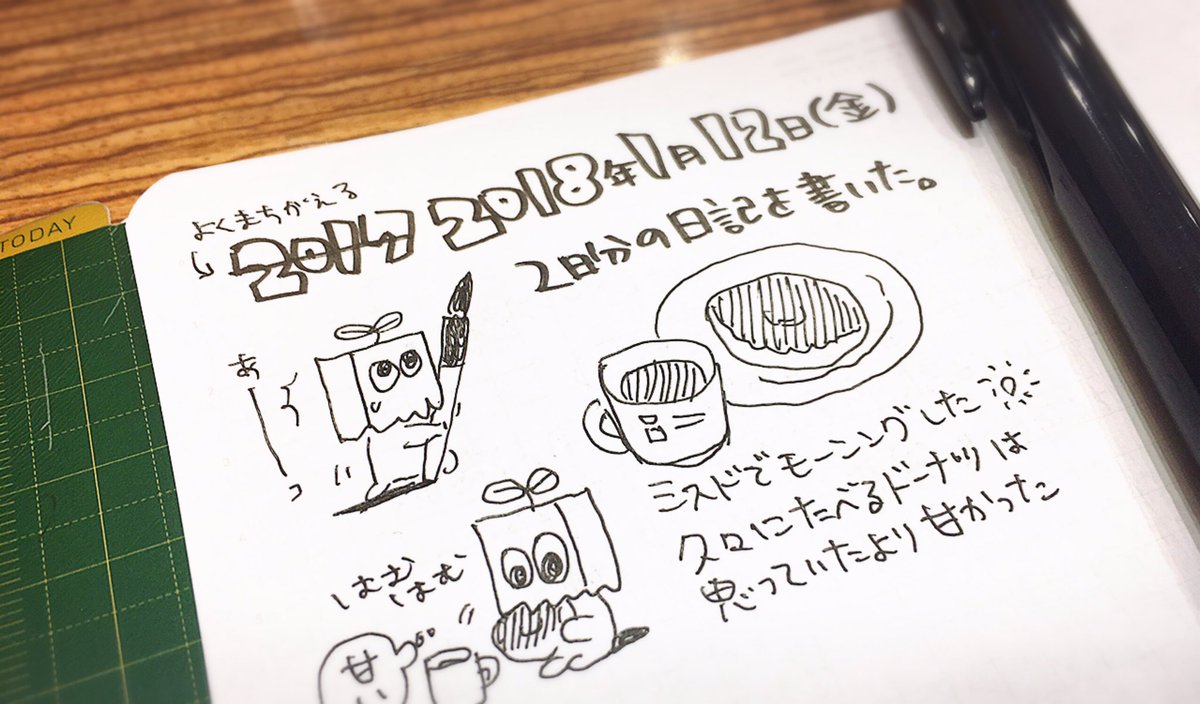 TODAY
よくまちがえる
2017 2018年1月12日(金)
2日分の日記を書いた。
あーっ
ミスドでモーニングした
久々にたべるドーナツは
思っていたより甘かった
はむ
はむ
甘い